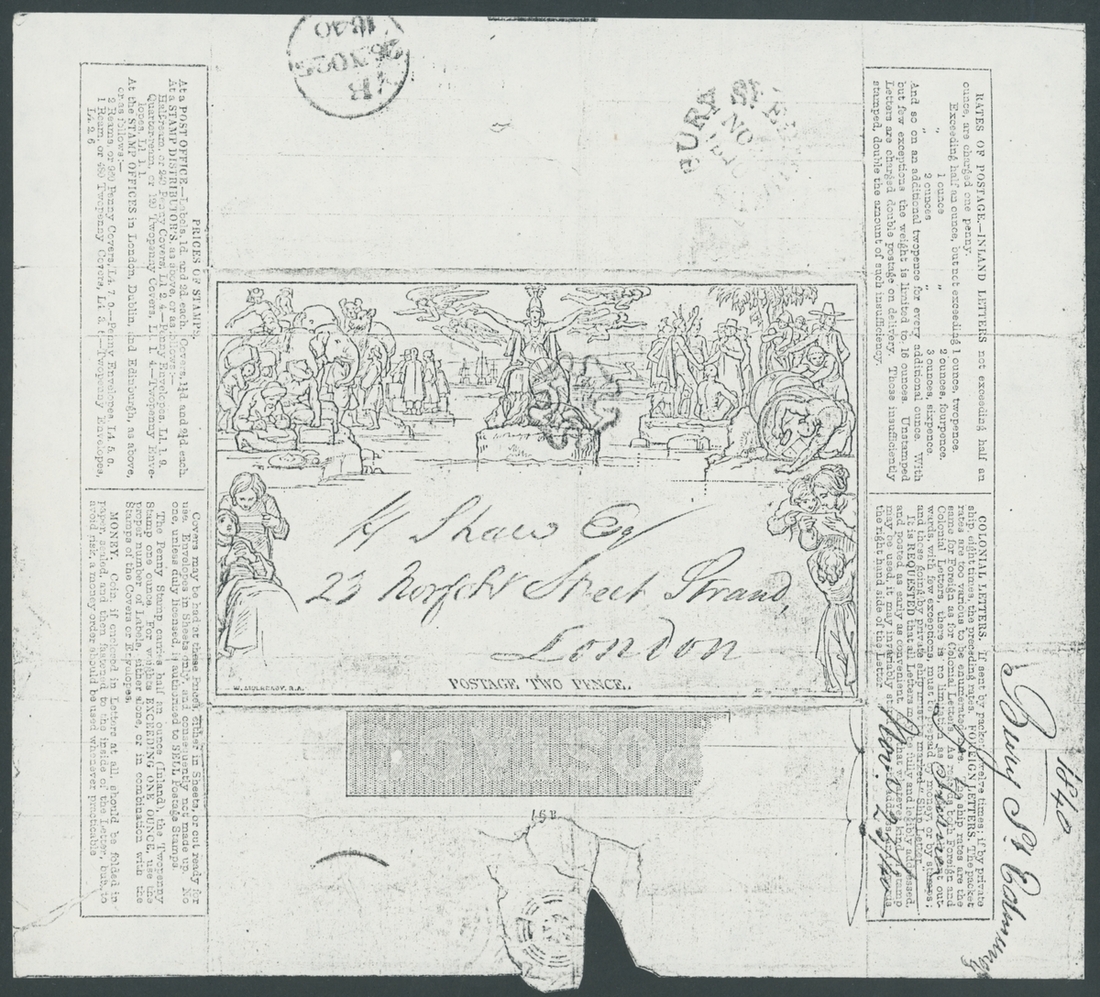 1840
RATES OF POSTAGE.—INLAND LETTERS not exceeding half an
ounce, are charged one penny.
Exceeding half an ounce, but not exceeding 1 ounce, twopence.
" 1 ounce " 2 ounces, fourpence.
" 2 ounces " 3 ounces, sixpence.
And so on an additional twopence for every additional ounce. With
but few exceptions the weight is limited to 16 ounces. Unstamped
Letters are charged double postage on delivery. Those insufficiently
stamped, double the amount of such insufficiency.
COLONIAL LETTERS. If sent by packet twelve times; if by private
ship, eight times, the preceding rates. FOREIGN LETTERS. The packet
rates are too various to be enumerated The ship rates are the
same for Foreign as for Colonial Letters. As both Foreign and
Colonial Letters, there is no limitation as sent out-
wards, with few exceptions, must be paid by money, or by stamps;
and those going by private ship must marked "Ship Letter.
It is REQUESTED that all Letters may fully and legibly addressed,
and posted as early as convenient. That whenever any kind Stamp
may be used, it may invariably
the right hand side of the Letter
1840
Bury St Edmunds
PRICES OF STAMPS
At a POST OFFICE.—Labels, 1d. and 2d. each. Covers, 1¼d and 2¼d each.
At a STAMP DISTRIBUTOR'S, as above, or as follows:
Half-ream, or 240 Penny Covers, L1 2 4.—Penny Envelopes, L1. 1. 9.
Quarter-ream, or 120 Twopenny Covers, L1. 1. 4.—Twopenny Enve-
lopes, L1. 1. 1
At the STAMP OFFICES in London, Dublin, and Edinburgh, as above,
or as follows:
2 Reams, or 960 Penny Covers, L4. 7. 0.—Penny Envelopes L4.
1 Ream, or 480 Twopenny Covers, L4. 3.—Twopenny Envelopes,
L4. 2. 6
Covers may be had at these Prices either in Sheets, or cut ready for
use. Envelopes in Sheets only, and consequently not made up. No
one, unless duly licensed, is authorised to SELL Postage Stamps.
The Penny Stamp carries half an ounce (Inland), the Twopenny
Stamp one ounce. For weights EXCEEDING ONE OUNCE, use the
proper number of Labels, either alone, or in combination with the
Stamps of the Covers or Envelopes.
MONEY. Coin, if enclosed in Letters at all, should be folded in
paper, sealed, and then fastened to the inside of the Letter, but, to
avoid risk, a money order should be used whenever practicable
H Shaw Esq
23 Norfolk Street Strand,
London
W. MULREADY. R.A.
POSTAGE TWO PENCE.
POSTAGE